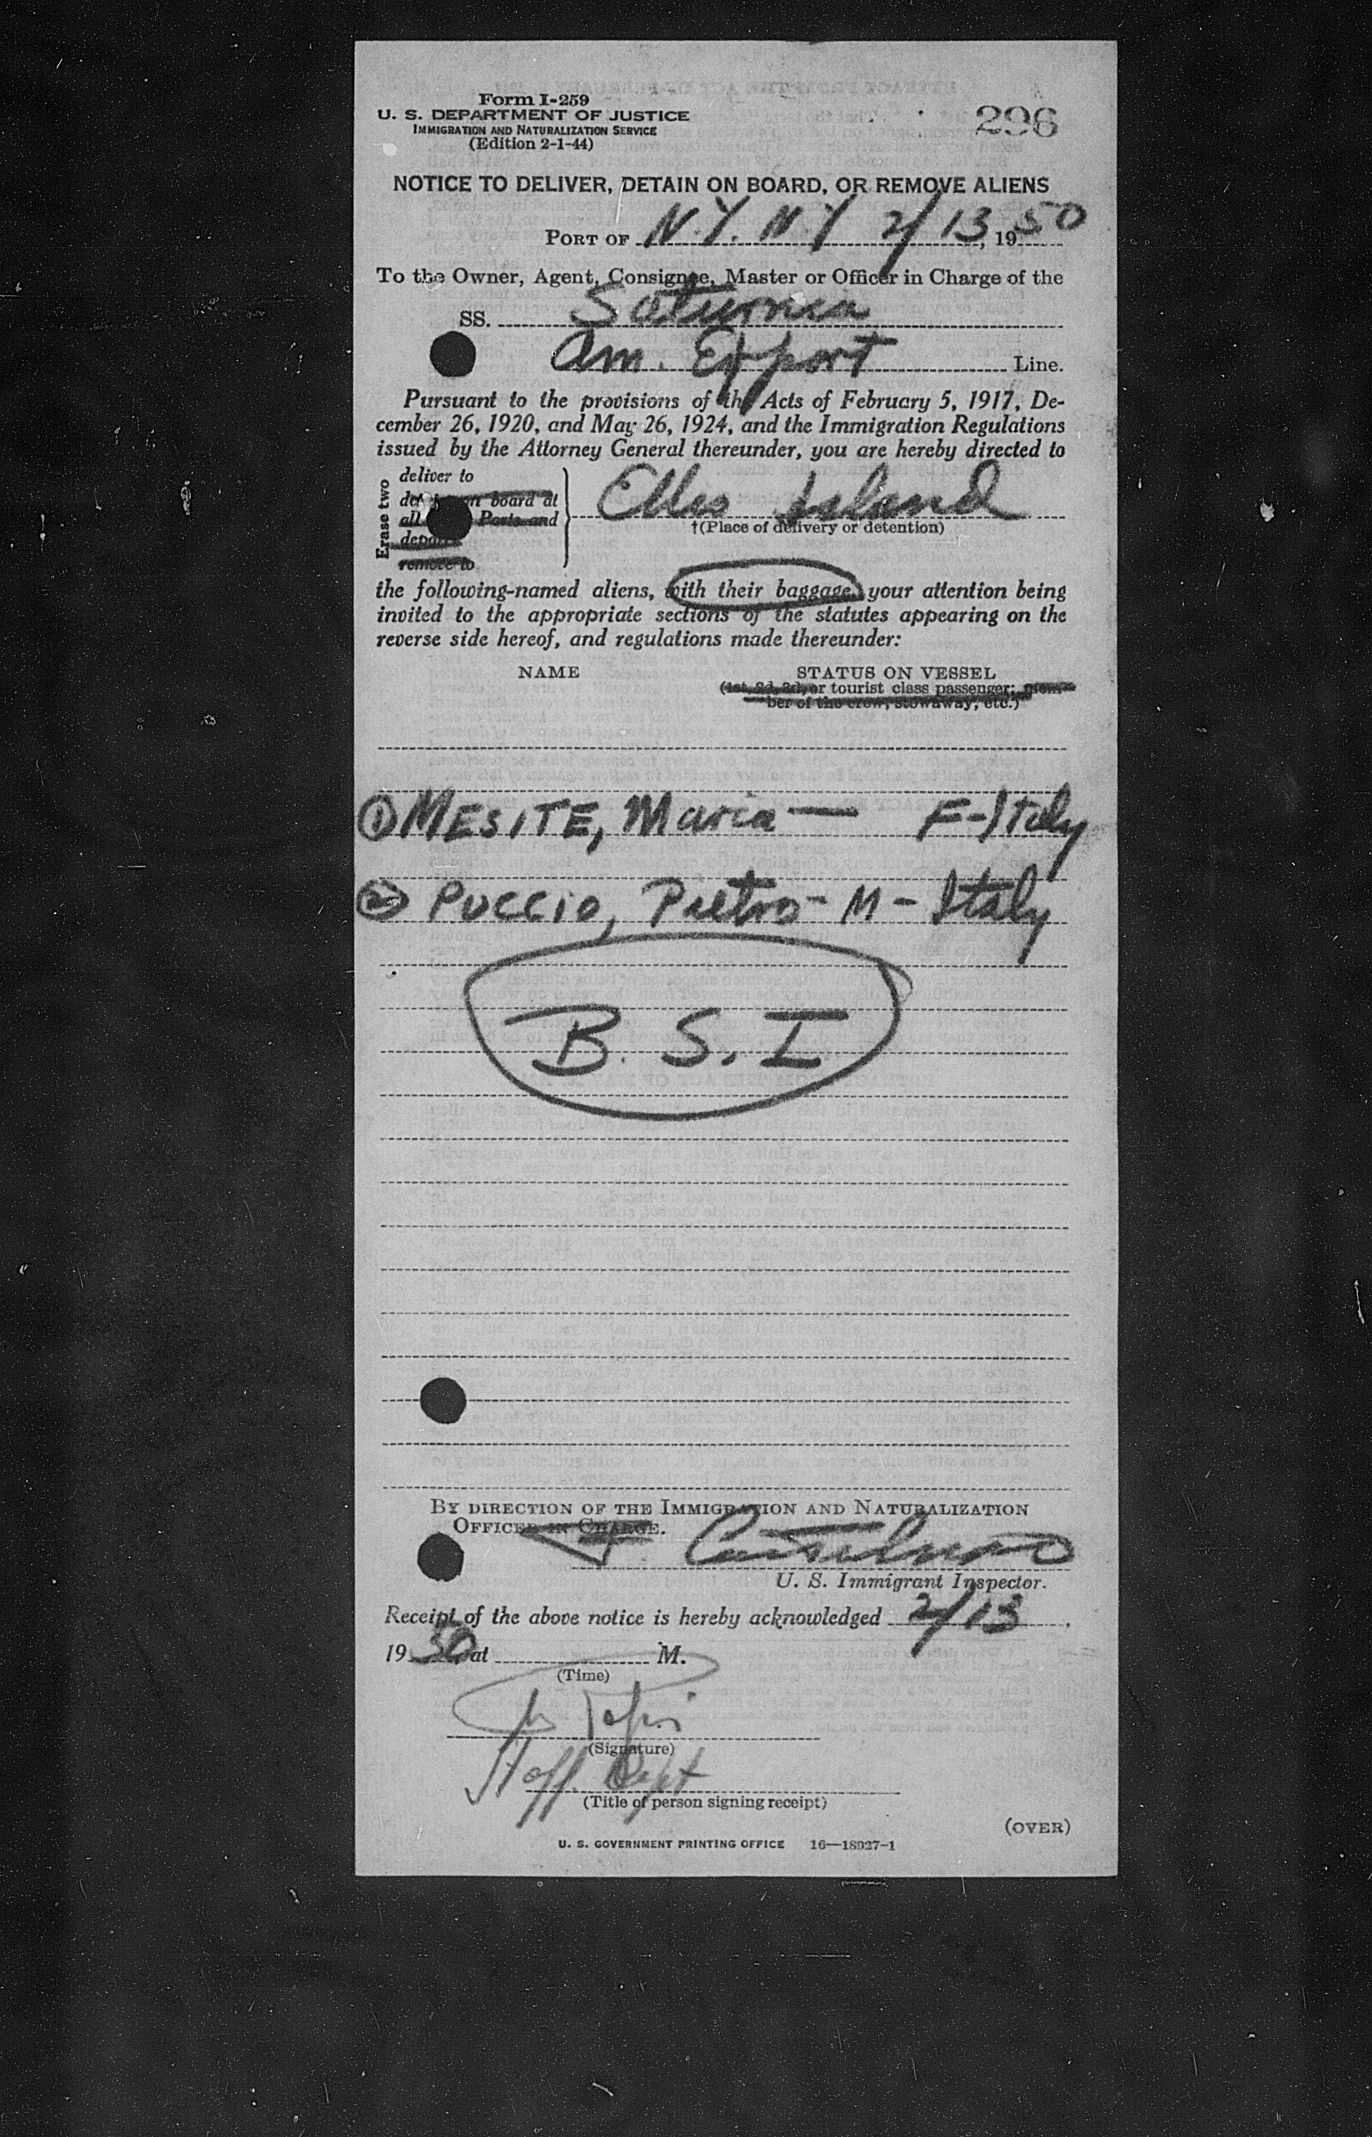 Form I-259
U. S. DEPARTMENT OF JUSTICE
IMMIGRATION AND NATURALIZATION SERVICE
(Edition 2-1-44)
296
NOTICE TO DELIVER, DETAIN ON BOARD, OR REMOVE ALIENS
PORT OF N.Y. N.Y 2/13, 1950
To the Owner, Agent, Consignee, Master or Officer in Charge of the
SS. Saturnia
Am. Export Line.
Pursuant to the provisions of the Acts of February 5, 1917, De-
cember 26, 1920, and May 26, 1924, and the Immigration Regulations
issued by the Attorney General thereunder, you are hereby directed to
Erase two
deliver to
on board at
all Ports and
remove to
Ellis Island
†(Place of delivery or detention)
the following-named aliens, with their baggage, your attention being
invited to the appropriate sections of the statutes appearing on the
reverse side hereof, and regulations made thereunder:
NAME STATUS ON VESSEL
(1st, 2d, 3d, or tourist class passenger; mem-
ber of the crew, stowaway, etc.)
① MESITE, Maria — F-Italy
② PUCCIO, Pietro - M - Italy
B. S. I
BY DIRECTION OF THE IMMIGRATION AND NATURALIZATION
OFFICER IN CHARGE.
U. S. Immigrant Inspector.
Receipt of the above notice is hereby acknowledged 2/13,
1950, at M.
(Time)
(Signature)
Dept
(Title of person signing receipt)
(OVER)
U. S. GOVERNMENT PRINTING OFFICE 16—18927-1